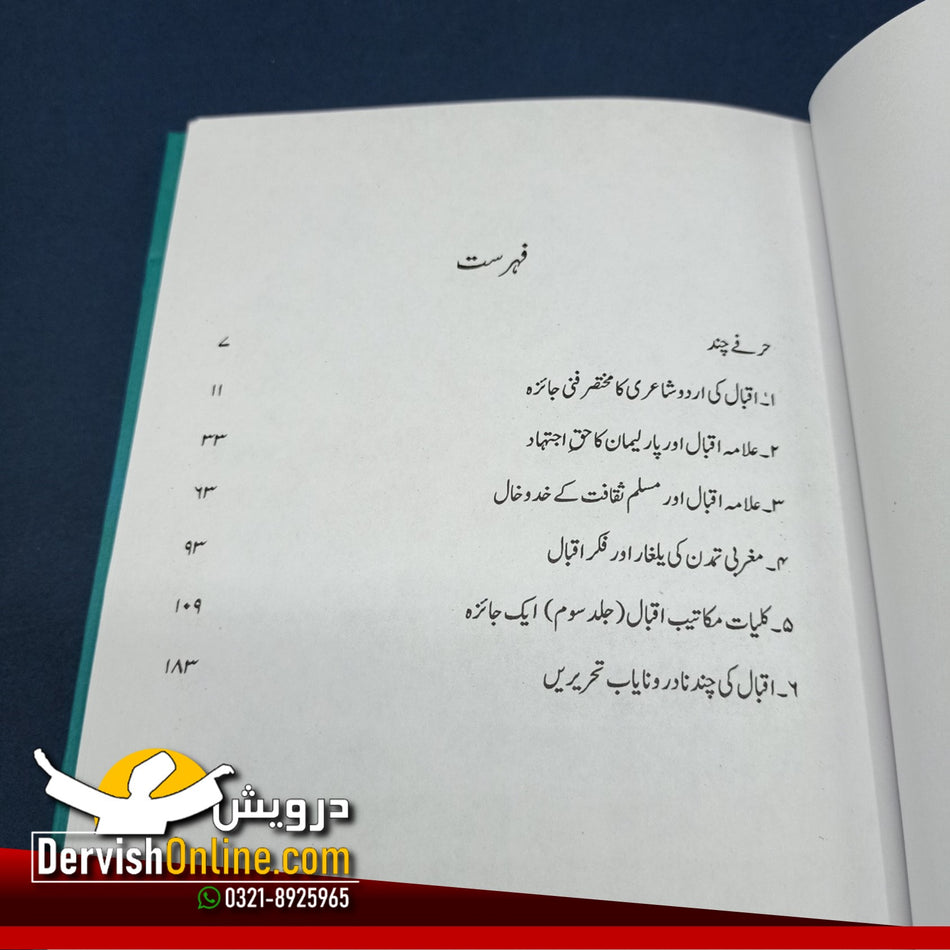 فہرست
حرفے چند ۷
۱۔ اقبال کی اردو شاعری کا مختصر فنی جائزہ ۱۱
۲۔ علامہ اقبال اور پارلیمان کا حقِ اجتہاد ۳۳
۳۔ علامہ اقبال اور مسلم ثقافت کے خدوخال ۶۳
۴۔ مغربی تمدن کی یلغار اور فکر اقبال ۹۳
۵۔ کلیات مکاتیب اقبال (جلد سوم) ایک جائزہ ۱۰۹
۶۔ اقبال کی چند نادر و نایاب تحریریں ۱۸۳
درویش
DervishOnline.com
0321-8925965